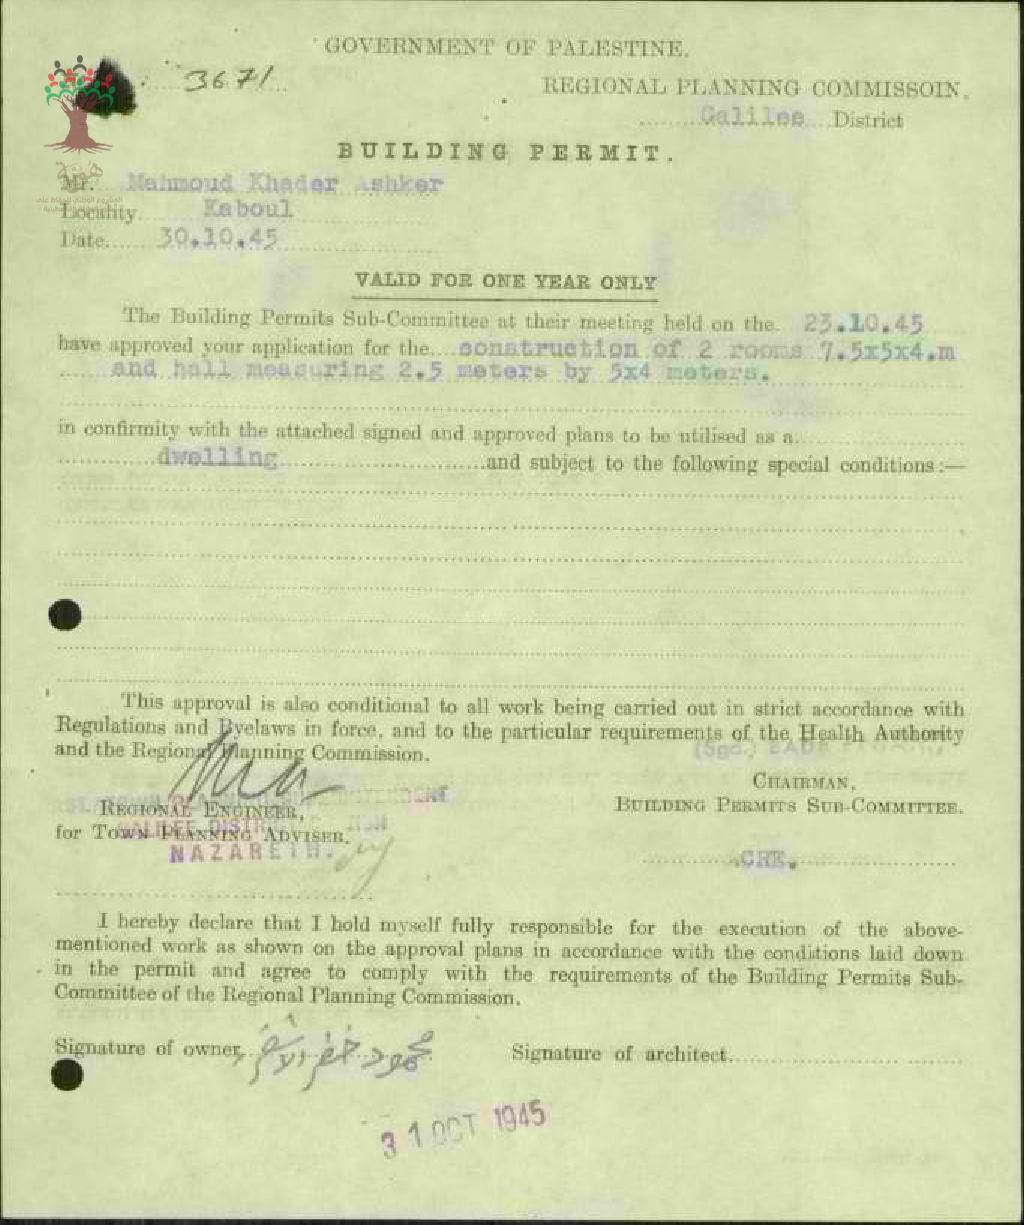 GOVERNMENT OF PALESTINE.
3671
REGIONAL PLANNING COMMISSOIN.
Galilee District
BUILDING PERMIT.
Mr. Mahmoud Khader Ashker
Locality Kaboul
Date 30.10.45
VALID FOR ONE YEAR ONLY
The Building Permits Sub-Committee at their meeting held on the 23.10.45
have approved your application for the construction of 2 rooms 7.5x5x4.m
and hall measuring 2.5 meters by 5x4 meters.
in confirmity with the attached signed and approved plans to be utilised as a
dwelling and subject to the following special conditions :—
This approval is also conditional to all work being carried out in strict accordance with
Regulations and Byelaws in force, and to the particular requirements of the Health Authority
and the Regional Planning Commission.
(Sgd.)
CHAIRMAN,
BUILDING PERMITS SUB-COMMITTEE.
REGIONAL ENGINEER,
for TOWN PLANNING ADVISER.
GALILEE DISTRICT
NAZARETH.
CRE.
I hereby declare that I hold myself fully responsible for the execution of the above-
mentioned work as shown on the approval plans in accordance with the conditions laid down
in the permit and agree to comply with the requirements of the Building Permits Sub-
Committee of the Regional Planning Commission.
Signature of owner محمود خضر الاشقر
Signature of architect
31 OCT 1945